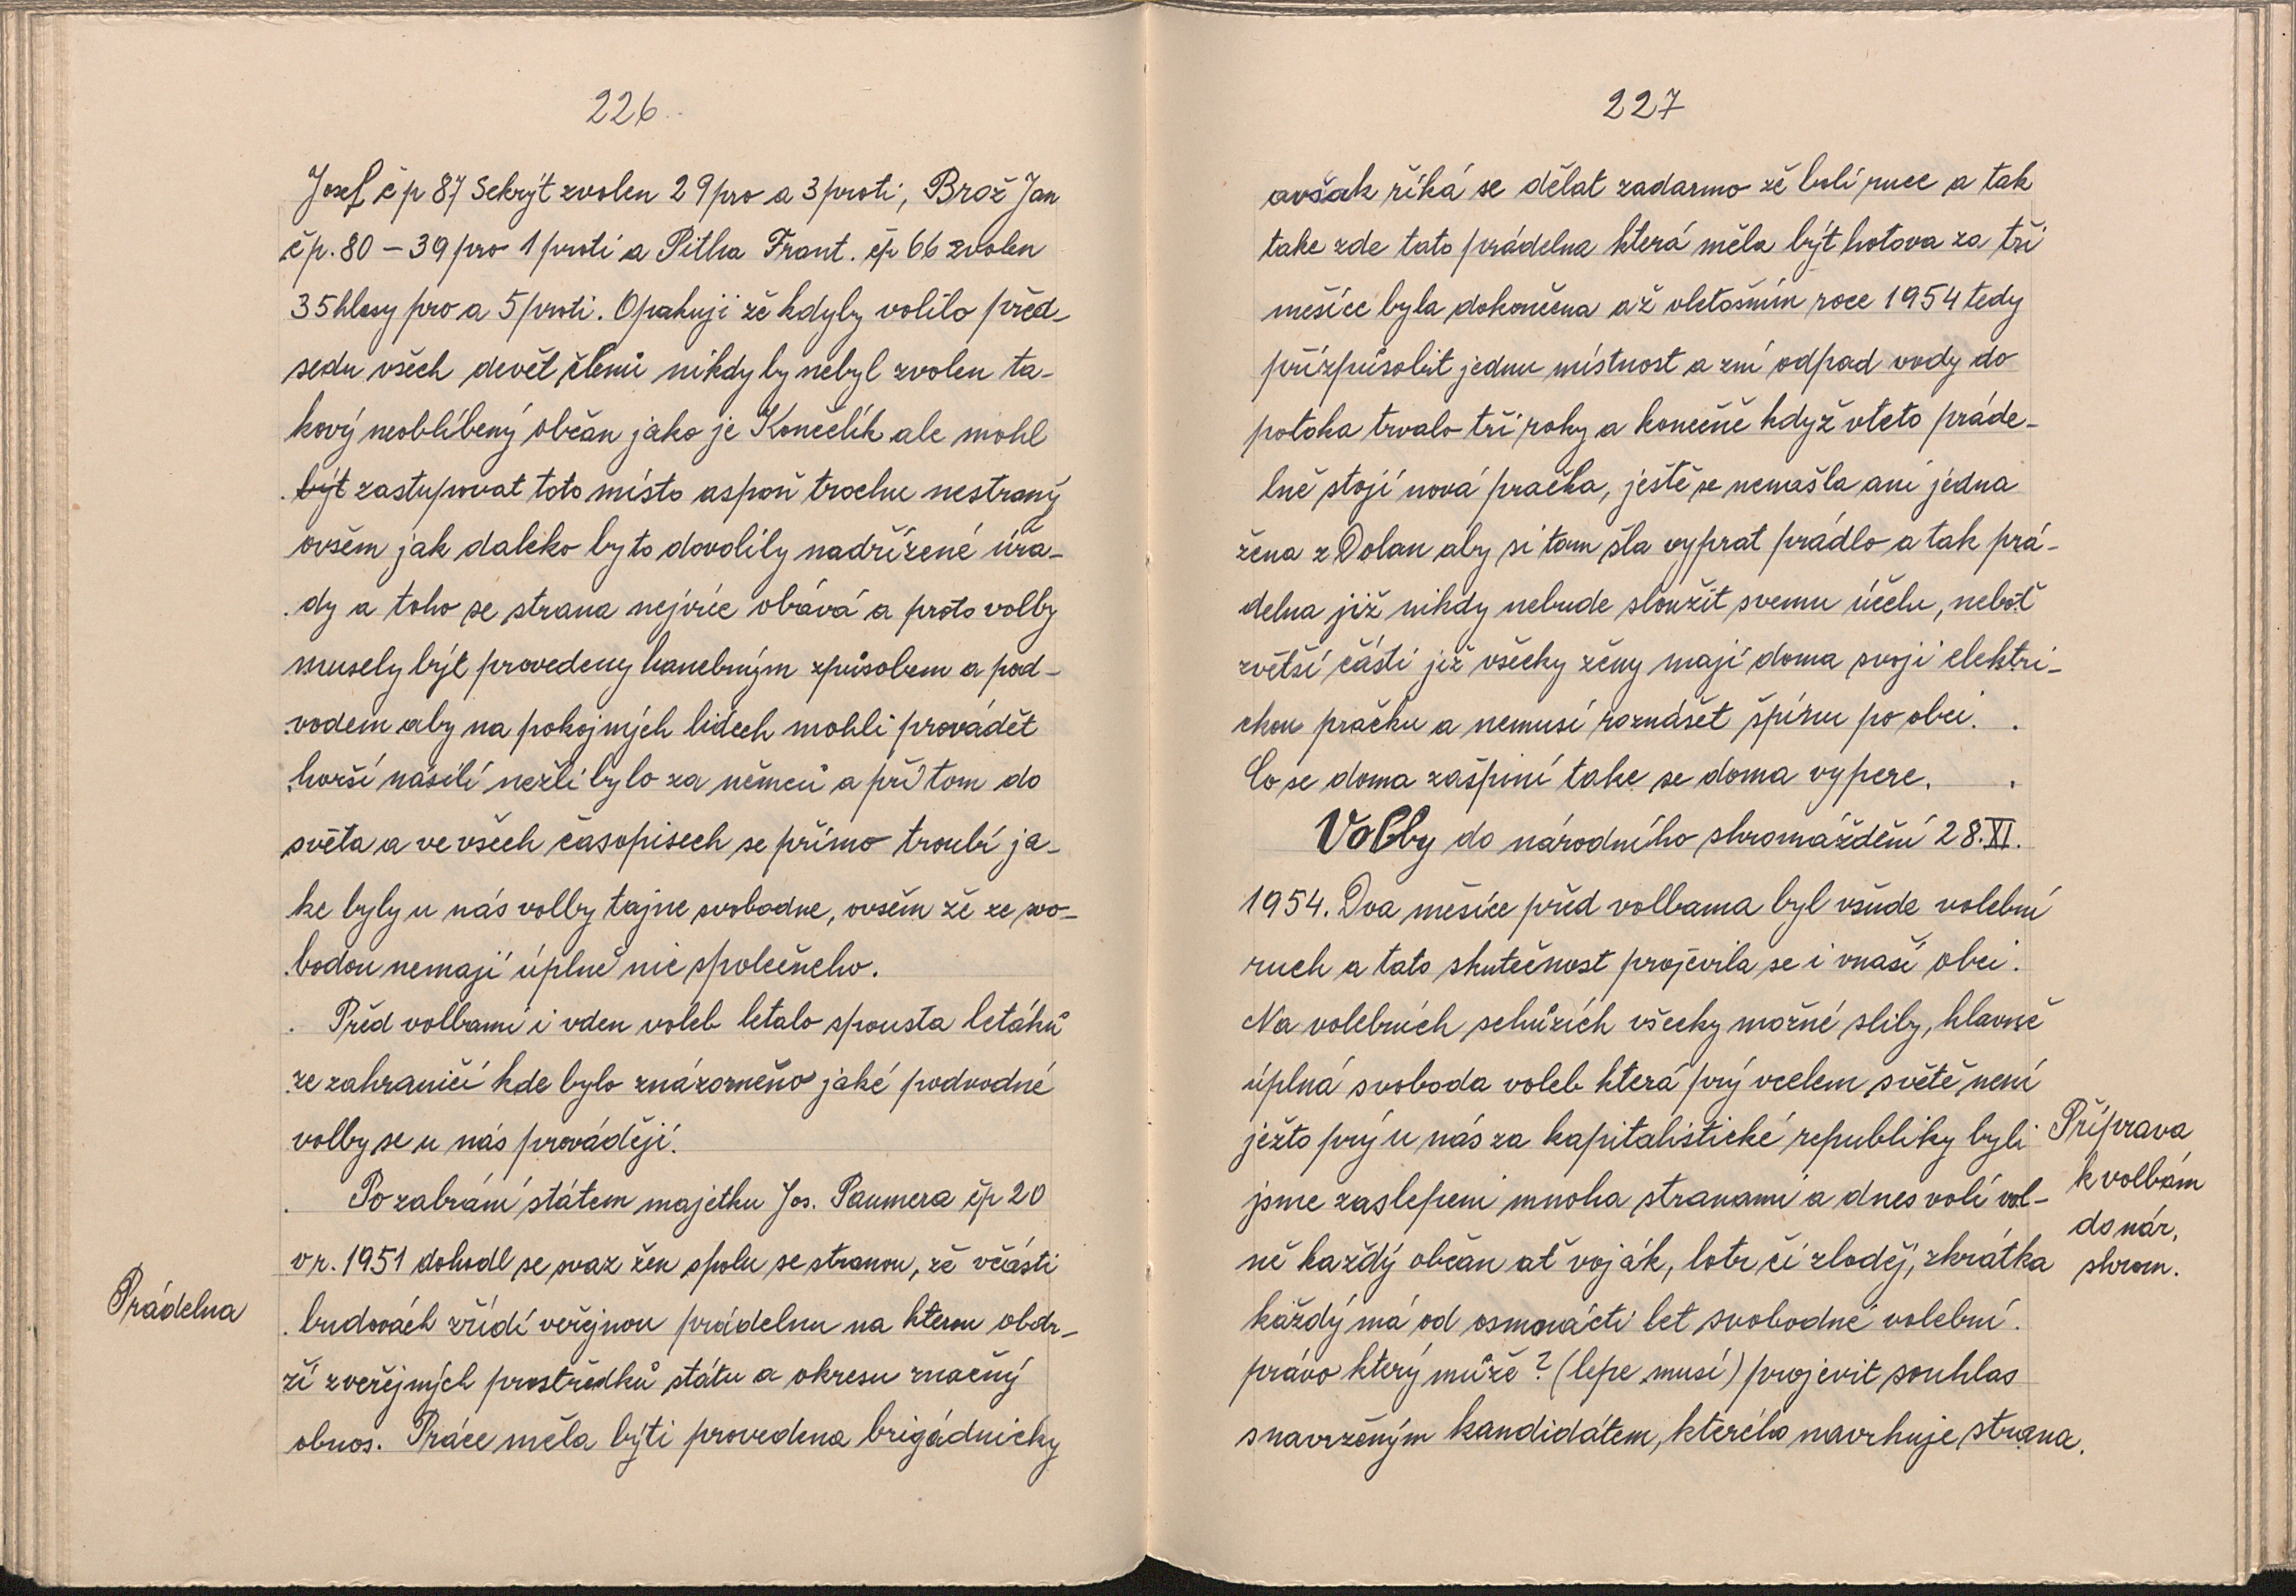 226
Josef čp 87 Sekrýt zvolen 29 pro a 3 proti, Brož Jan
čp. 80 – 39 pro 1 proti a Pitha Frant. čp 66 zvolen
35 hlasy pro a 5 proti. Opakuji že kdyby volilo před-
sedu všech devět členů nikdy by nebyl zvolen ta-
kový neoblíbený občan jako je Končelík ale mohl
být zastupovat toto místo aspoň trochu nestraný
ovšem jak daleko by to dovolily nadřízené úřa-
dy a toho se strana nejvíce obává a proto volby
musely být provedeny hanebným způsobem a pod-
vodem aby na pokojných lidech mohli provádět
horší násilí nežli bylo za němců a při tom do
světa a ve všech časopisech se přímo troubí ja-
ke byly u nás volby tajne svobodne, ovšem že ze svo-
bodou nemají úplně nic společneho.
Před volbami i vden voleb letalo spousta letáků
ze zahraničí kde bylo znázorněno jaké podvodné
volby se u nás provádějí.
Po zabrání státem majetku Jos. Paumera čp 20
v r. 1951 dohodl se svaz žen spolu se stranou, že včásti
Prádelna
budovách zřídí veřejnou prádelnu na kterou obdr-
ží zveřejných prostředků státu a okresu značný
obnos. Práce měla býti provedena brigádnicky
227
avšak říká se dělat zadarmo že bolí ruce a tak
take zde tato prádelna která měla být hotova za tři
měsíce byla dokončena až vletošním roce 1954 tedy
přizpůsobit jednu místnost a zní odpad vody do
potoka trvalo tři roky a konečně když vteto práde-
lně stojí nová pračka, ještě se nenašla ani jedna
žena z Dolan aby si tam šla vyprat prádlo a tak prá-
delna již nikdy nebude sloužit svemu účelu, neboť
zvětší části již všecky ženy mají doma svoji elektri-
ckou pračku a nemusí roznášet špínu po obci.
Co se doma zašpiní take se doma vypere.
Volby do národního shromáždění 28. XI.
1954. Dva měsíce před volbama byl všude volební
ruch a tato skutečnost projevila se i vnaší obci.
Na volebních schůzích všecky možné sliby, hlavně
úplná svoboda voleb která prý vcelem světě není
ježto prý u nás za kapitalistické republiky byli
jsme zaslepeni mnoha stranami a dnes volí vol-
ně každý občan ať voják, lotr či zloděj, zkrátka
každý má od osmnácti let svobodné volební
právo který může? (lepe musí) projevit souhlas
s navrženým kandidátem, kterého navrhuje strana.
Příprava
k volbám
do nár.
shrom.